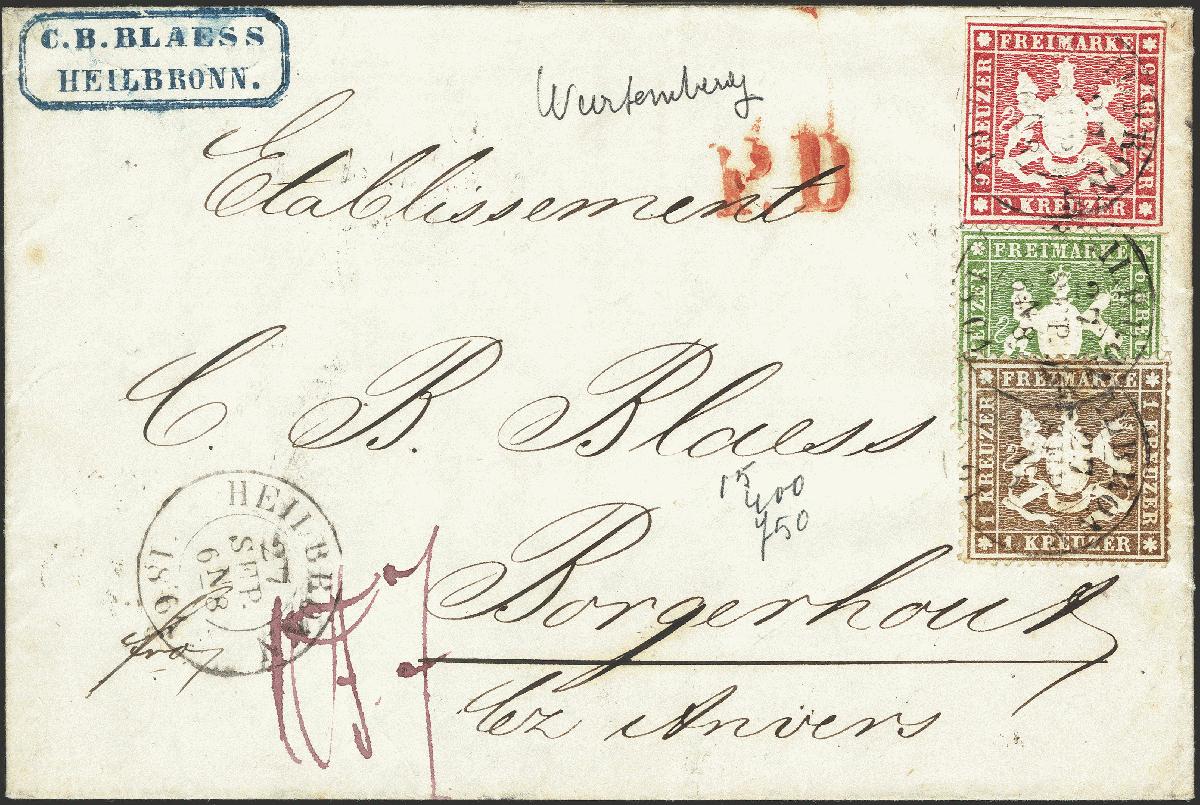 C. B. BLAESS
HEILBRONN.
Wurtemberg
P.D
Etablissement
C. B. Blaess
Borgerhout
Lez Anvers
15
400
750
HEILBRONN
27
SEP.
6 N 8
186
fro
FREIMARKE
9 KREUZER
9 KREUZER
9 KREUZER
FREIMARKE
FREIMARKE
1 KREUZER
1 KREUZER
1 KREUZER